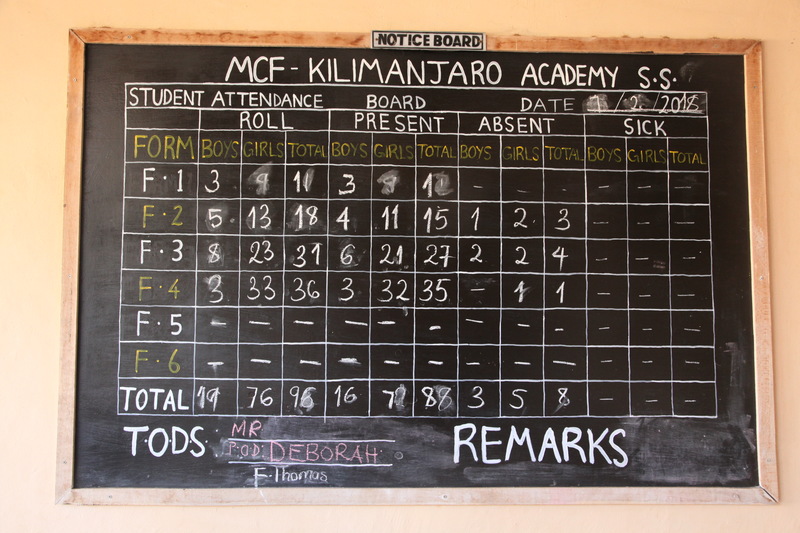 NOTICE BOARD
MCF - KILIMANJARO ACADEMY S.S.
STUDENT ATTENDANCE BOARD DATE /2/2018
ROLL PRESENT ABSENT SICK
FORM BOYS GIRLS TOTAL BOYS GIRLS TOTAL BOYS GIRLS TOTAL BOYS GIRLS TOTAL
F.1 3 11 3 - - - - - -
F.2 5 13 18 4 11 15 1 2 3 - - -
F.3 8 23 31 6 21 27 2 2 4 - - -
F.4 3 33 36 3 32 35 - 1 1 - - -
F.5 - - - - - - - - - - - -
F.6 - - - - - - - - - - - -
TOTAL 19 76 96 16 88 3 5 8 - - -
T.O.DS MR REMARKS
P.O.D: DEBORAH
F.Thomas